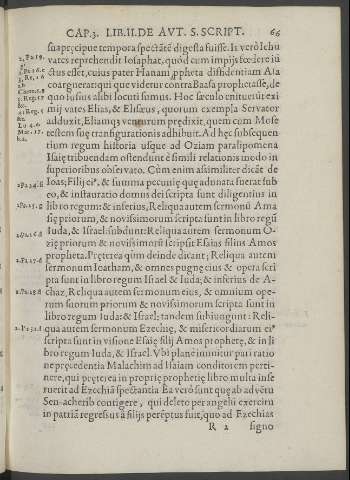 CAP.3. LIB.II.DE AVT. S. SCRIPT. 66
sua pręcipue tempora spectātē digesta fuisse. Is verò Iehu
vates reprehendit Iosaphat, quòd cum impijs fœdere iū
ctus esset, cuius pater Hanani ꝓpheta diffidentiam Asa
coarguerat: qui que videtur contra Baasa prophetasse, de
quo iusius alibi locuti sumus. Hoc sæculo enituerūt exi
mij vates Elias, & Elisæus, quorum exempla Servator
adduxit, Eliamqꝫ venturum prędixit, quem cum Mose
testem suę transfigurationis adhibuit. Ad hęc subsequen
tium regum historia usque ad Oziam paralipomena
Isaię tribuendam ostendunt è simili relationis modo in
superioribus observato. Cùm enim assimiliter dicāt de
Ioas; Filij ei⁹, & summa pecunię quę adunata fuerat sub
eo, & instauratio domus dei scripta sunt diligentius in
libro regum: & inferius, Reliqua autem sermonū Ama
się priorum, & novissimorum scripta sunt in libro regū
Iuda, & Israel: subdunt: Reliqua autem sermonum O-
zię priorum & novissimorū scripsit Esaias filius Amos
propheta. Pręterea qūm deinde dicant; Reliqua autem
sermonum Ioatham, & omnes pugnę eius & opera scri
pta sunt in libro regum Israel & Iuda; & inferius de A-
chaz, Reliqua autem sermonum eius, & omnium ope-
rum suorum priorum & novissimorum scripta sunt in
libro regum Iuda: & Israel: tandem subiungunt: Reli-
qua autem sermonum Ezechię, & misericordiarum ei⁹
scripta sunt in visione Esaię filij Amos prophetę, & in li
bro regum Iuda, & Israel. Vbi planè innuitur pari ratio
ne pręcedentia Malachim ad Isaiam conditorem perti-
nere, qui pręterea in proprię prophetię libro multa inse
ruerit ad Ezechiā spectantia Ea verò sunt quę ab advētu
Sen-acherib contigere, qui deleto per angelū exercitu
in patriā regressus à filijs perēptus fuit, quo ad Ezechias
R 2 signo
2.Pa.19.
2.Pa.16.c
3.Re.16
3.Reg.17
4.Reg.1
Lu.4.6.
Mat.17.
2.Pa.24.g
2.Pa.25.g
2.Pa.26.d
2.Pa.27.d
2.Pa.28.g
2.Pa.32.g